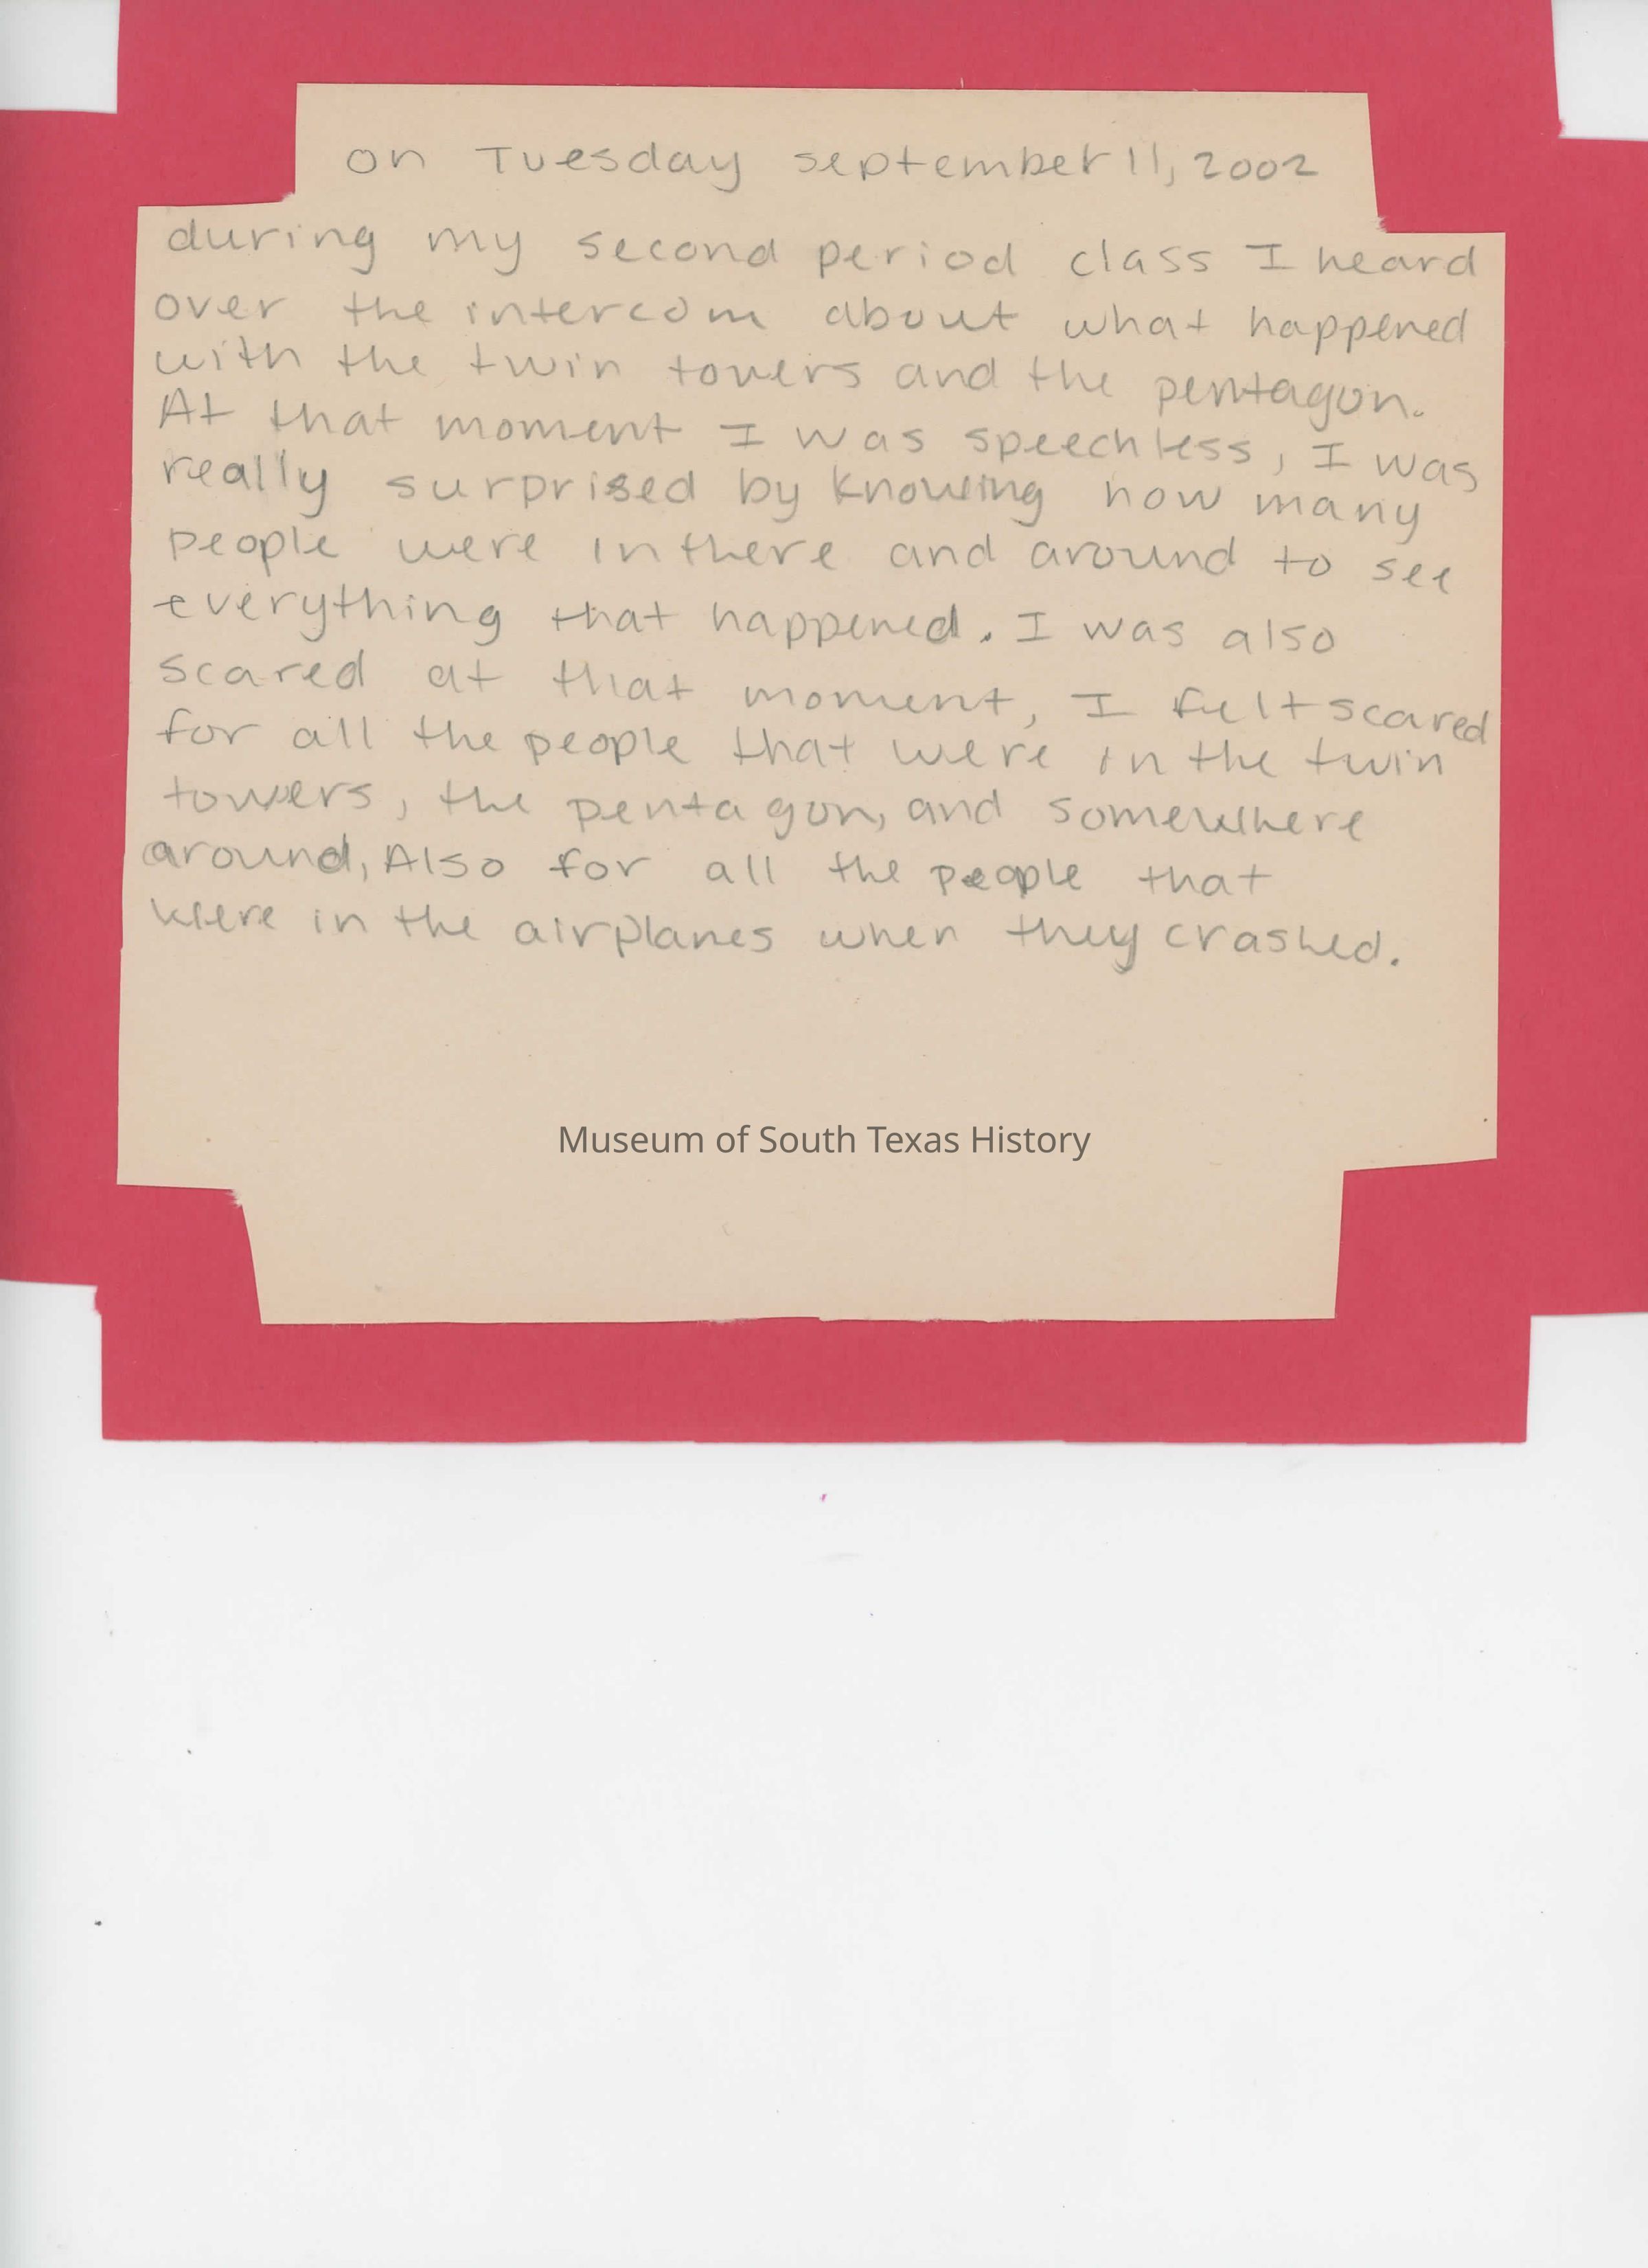 on Tuesday september 11, 2002
during my second period class I heard
over the intercom about what happened
with the twin towers and the pentagon.
At that moment I was speechless, I was
really surprised by knowing how many
people were in there and around to see
everything that happened. I was also
scared at that moment, I felt scared
for all the people that were in the twin
towers, the pentagon, and somewhere
around, Also for all the people that
were in the airplanes when they crashed.
Museum of South Texas History